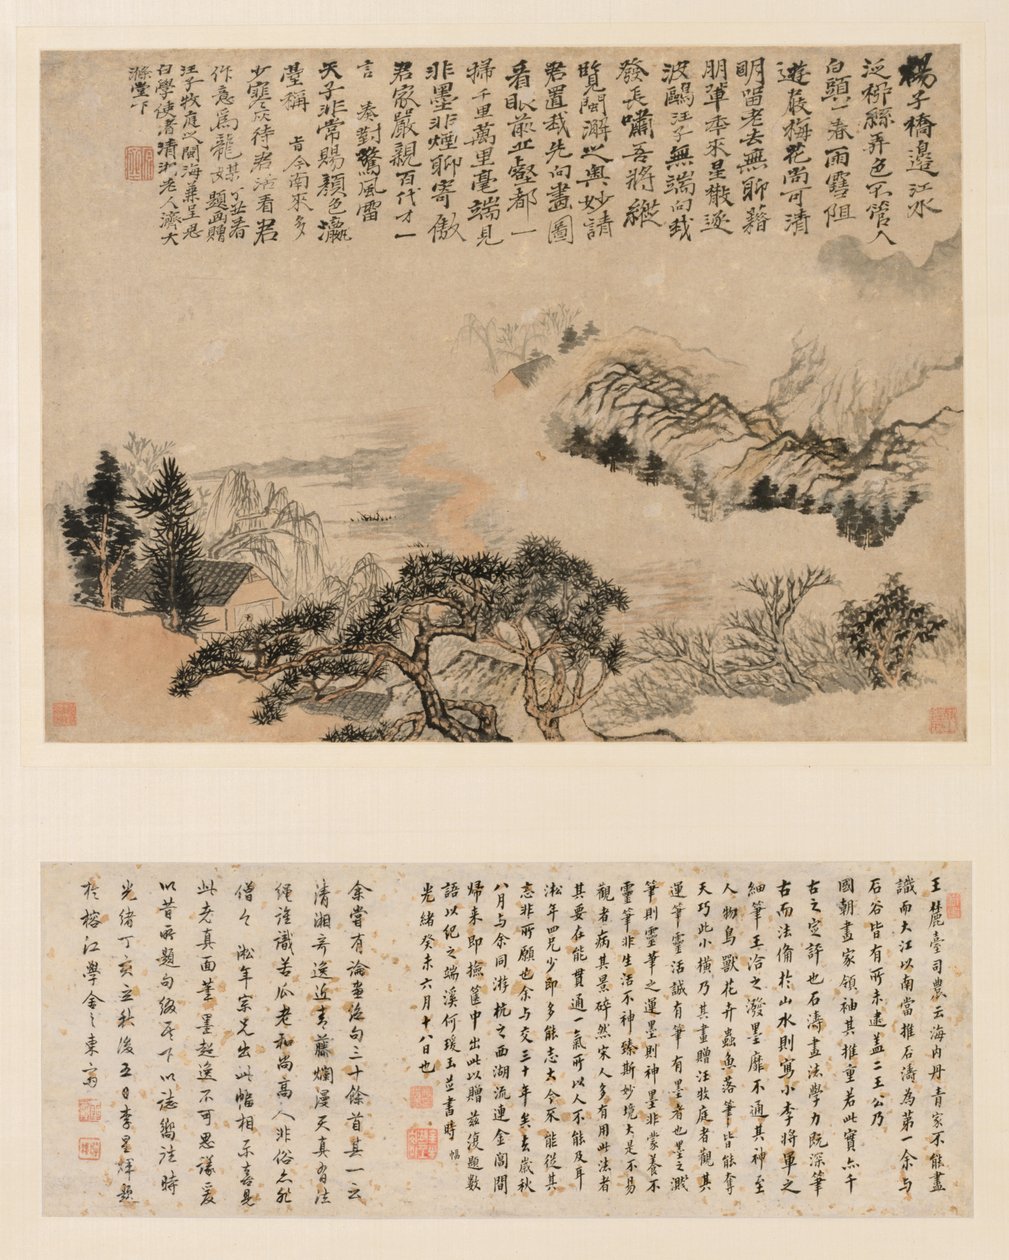 楊子橋邊江水
泛柳絲弄色不管人
白頭一春雨雪阻
遊嚴梅花尚可清
明留老去無聊藉
朋輩本來星散逐
波鷗汪子無端向我
發長嘯吾將縱
覽開澥之奥妙請
君置我先向畫圖
看眼前丘壑都一
掃千里萬里毫端見
非墨非煙聊寄傲
君家嚴親百代才一
言奏對驚風雷
天子非常賜顏色瀛
臺稱旨今南來多
少寒灰待君活看君
作意為龍媒
汪子牧庭之閩海兼呈思
白學使者清湘老人濟大
滌堂下
王麓臺司農云海內丹青家不能盡
識而大江以南當推石濤為第一余與
石谷皆有所未逮蓋二王公乃
國朝畫家領袖其推重若此實亦千
古之定評也石濤畫法學力既深筆
古而法備於山水則寫小李將軍之
細筆王洽之潑墨靡不通其神至
人物鳥獸花卉蟲魚落筆皆能奪
天巧此小橫乃其畫贈汪牧庭者觀其
運筆靈活誠有筆有墨者也墨之濺
筆則靈筆之運墨則神墨非蒙養不
靈筆非生活不神臻斯妙境大是不易
觀者病其景碎然宋人多有用此法者
其要在能貫通一氣所以人不能及耳
淞年四兄少即多能志大今不能從其
志非所願也余與交三十年矣去歲秋
八月與余同游杭之西湖流連金閶間
歸來即撿篋中出此以贈茲復題數
語以紀之端溪何瑗玉並書時
光緒癸未六月十八日也
余嘗有論畫絕句三十餘首其一云
清湘奇逸近青藤爛漫天真有法
繩誰識苦瓜老和尚高人非俗亦非
僧今淞年宗兄出此幅相示喜見
此老真面筆墨超逸不可思議爰
以昔所題句綴於下以誌嚮往時
光緒丁亥立秋後五日李星煇題
於榕江學舍之東齋